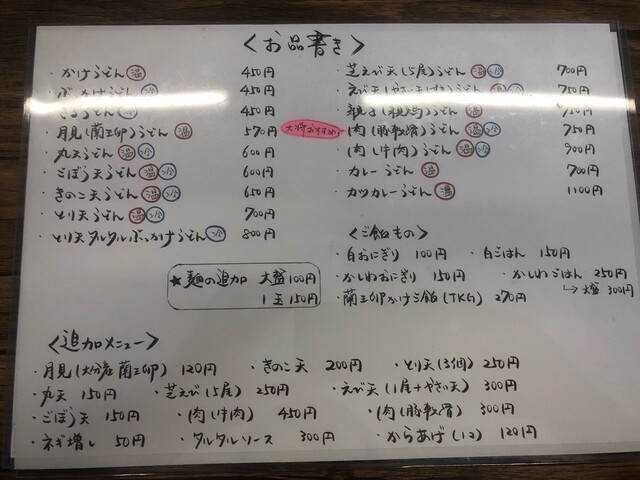 ＜お品書き＞
・かけうどん 温 450円
・ぶっかけうどん 冷 450円
・ざるうどん 冷 450円
・月見(蘭王卵)うどん 温 570円
・丸天うどん 温 冷 600円
・ごぼう天うどん 温 冷 600円
・きのこ天うどん 温 冷 650円
・とり天うどん 温 冷 700円
・とり天タルタルぶっかけうどん 冷 800円
★麺の追加 大盛100円
1玉150円
・芝えび天(5尾)うどん 温 冷 700円
・えび天 うどん 温 冷 750円
・親子(親鶏)うどん 温 750円
大将おすすめ
・肉(豚軟骨)うどん 温 冷 750円
・肉(牛肉)うどん 温 冷 900円
・カレーうどん 温 700円
・カツカレーうどん 温 1100円
＜ご飯もの＞
・白おにぎり 100円 ・白ごはん 150円
・かしわおにぎり 150円 ・かしわごはん 250円
↳大盛 300円
・蘭王卵かけご飯(TKG) 270円
＜追加メニュー＞
・月見(大分産蘭王卵) 120円 ・きのこ天 200円 ・とり天(3個) 250円
・丸天 150円 ・芝えび(5尾) 250円 ・えび天(1尾+やさい天) 300円
・ごぼう天 150円 ・肉(牛肉) 450円 ・肉(豚軟骨) 300円
・ネギ増し 50円 ・タルタルソース 300円 ・からあげ(1コ) 120円